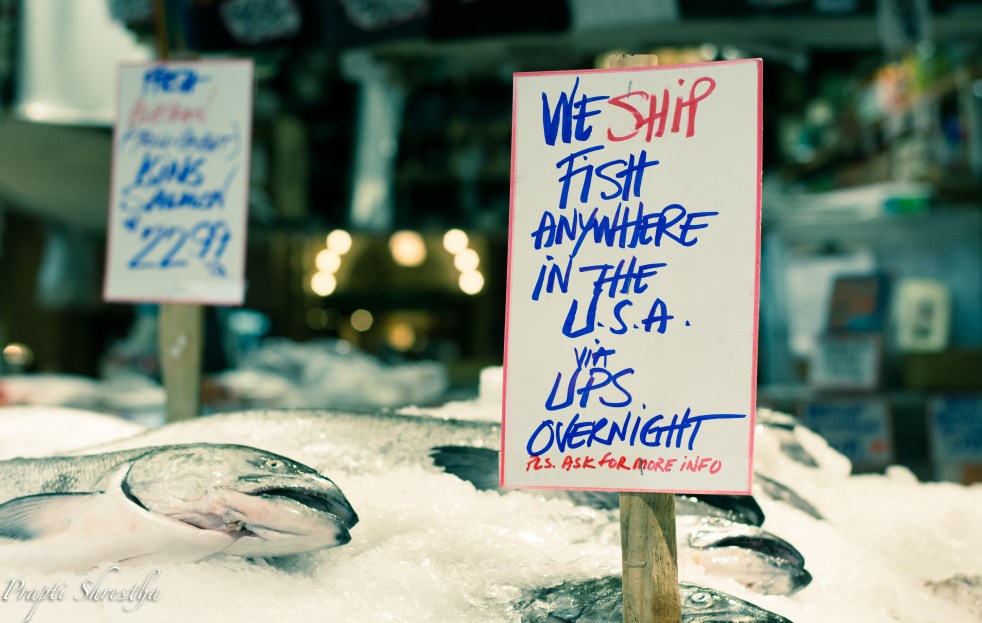 WE SHIP
FISH
ANYWHERE
IN THE
U.S.A.
VIA
UPS
OVERNIGHT
PLS. ASK FOR MORE INFO
KING
SALMON
$22.99
Prapti Shrestha